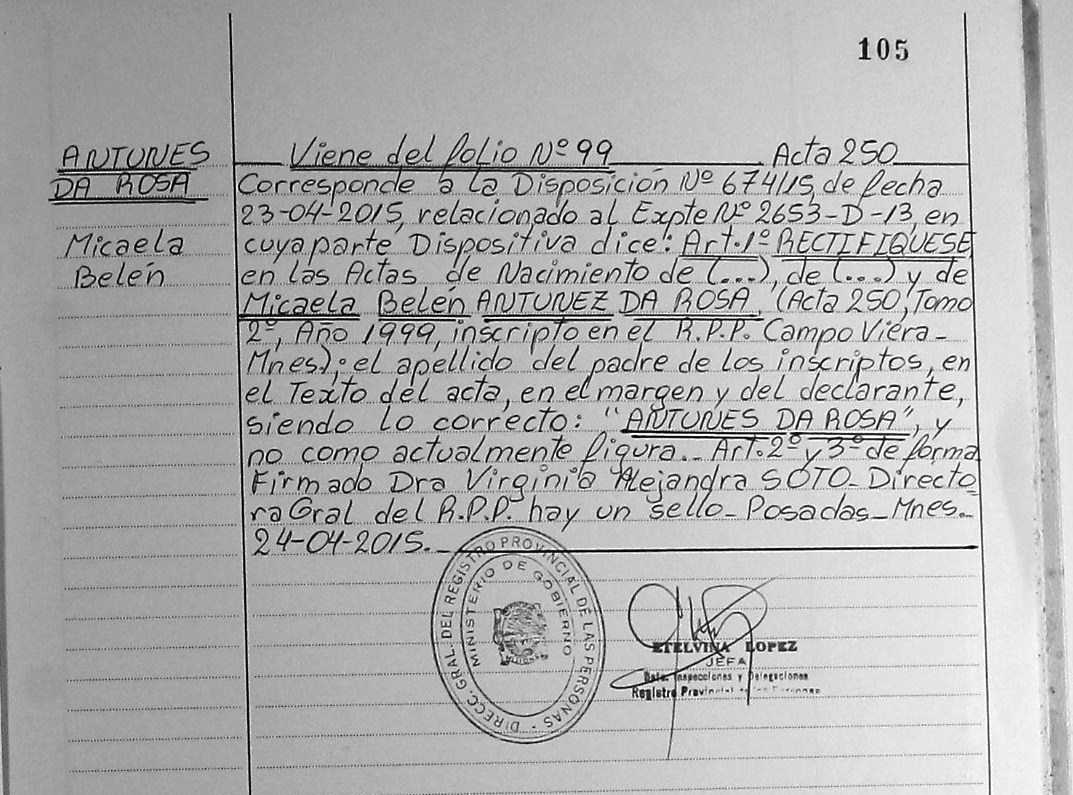 105
ANTUNES
DA ROSA
Micaela
Belén
Viene del folio Nº 99 Acta 250
Corresponde a la Disposición Nº 674/15, de fecha
23-04-2015, relacionado al Expte Nº 2653-D-13, en
cuya parte Dispositiva dice: Art. 1º RECTIFIQUESE
en las Actas de Nacimiento de (...), de (...) y de
Micaela Belén ANTUNEZ DA ROSA, (Acta 250, Tomo
2º, Año 1999, inscripto en el R.P.P. Campo Viera-
Mnes); el apellido del padre de los inscriptos, en
el Texto del acta, en el margen y del declarante,
siendo lo correcto: "ANTUNES DA ROSA", y
no como actualmente figura. Art. 2º y 3º de forma
Firmado Dra Virginia Alejandra SOTO- Directo
ra Gral del R.P.P. hay un sello- Posadas- Mnes.-
24-04-2015.-
DIRECC. GRAL. DEL REGISTRO PROVINCIAL DE LAS PERSONAS -
MINISTERIO DE GOBIERNO
ETELVINA LOPEZ
JEFA
Dpto. Inspecciones y Delegaciones
Registro Provincial de las Personas